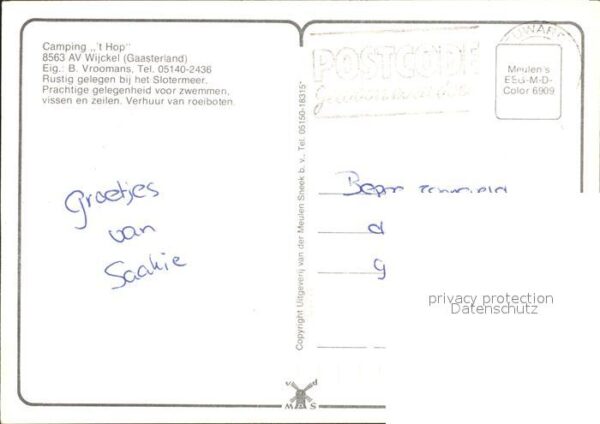 Camping „'t Hop"
8563 AV Wijckel (Gaasterland)
Eig.: B. Vroomans, Tel. 05140-2436
Rustig gelegen bij het Slotermeer.
Prachtige gelegenheid voor zwemmen,
vissen en zeilen. Verhuur van roeiboten.
Groetjes
van
Saakie
Copyright Uitgeverij van der Meulen Sneek b.v., Tel. 05150-18315*
POSTCODE
Meulen's
EEG-M-D-
Color 6909
d
g
privacy protection
Datenschutz
v d
M S